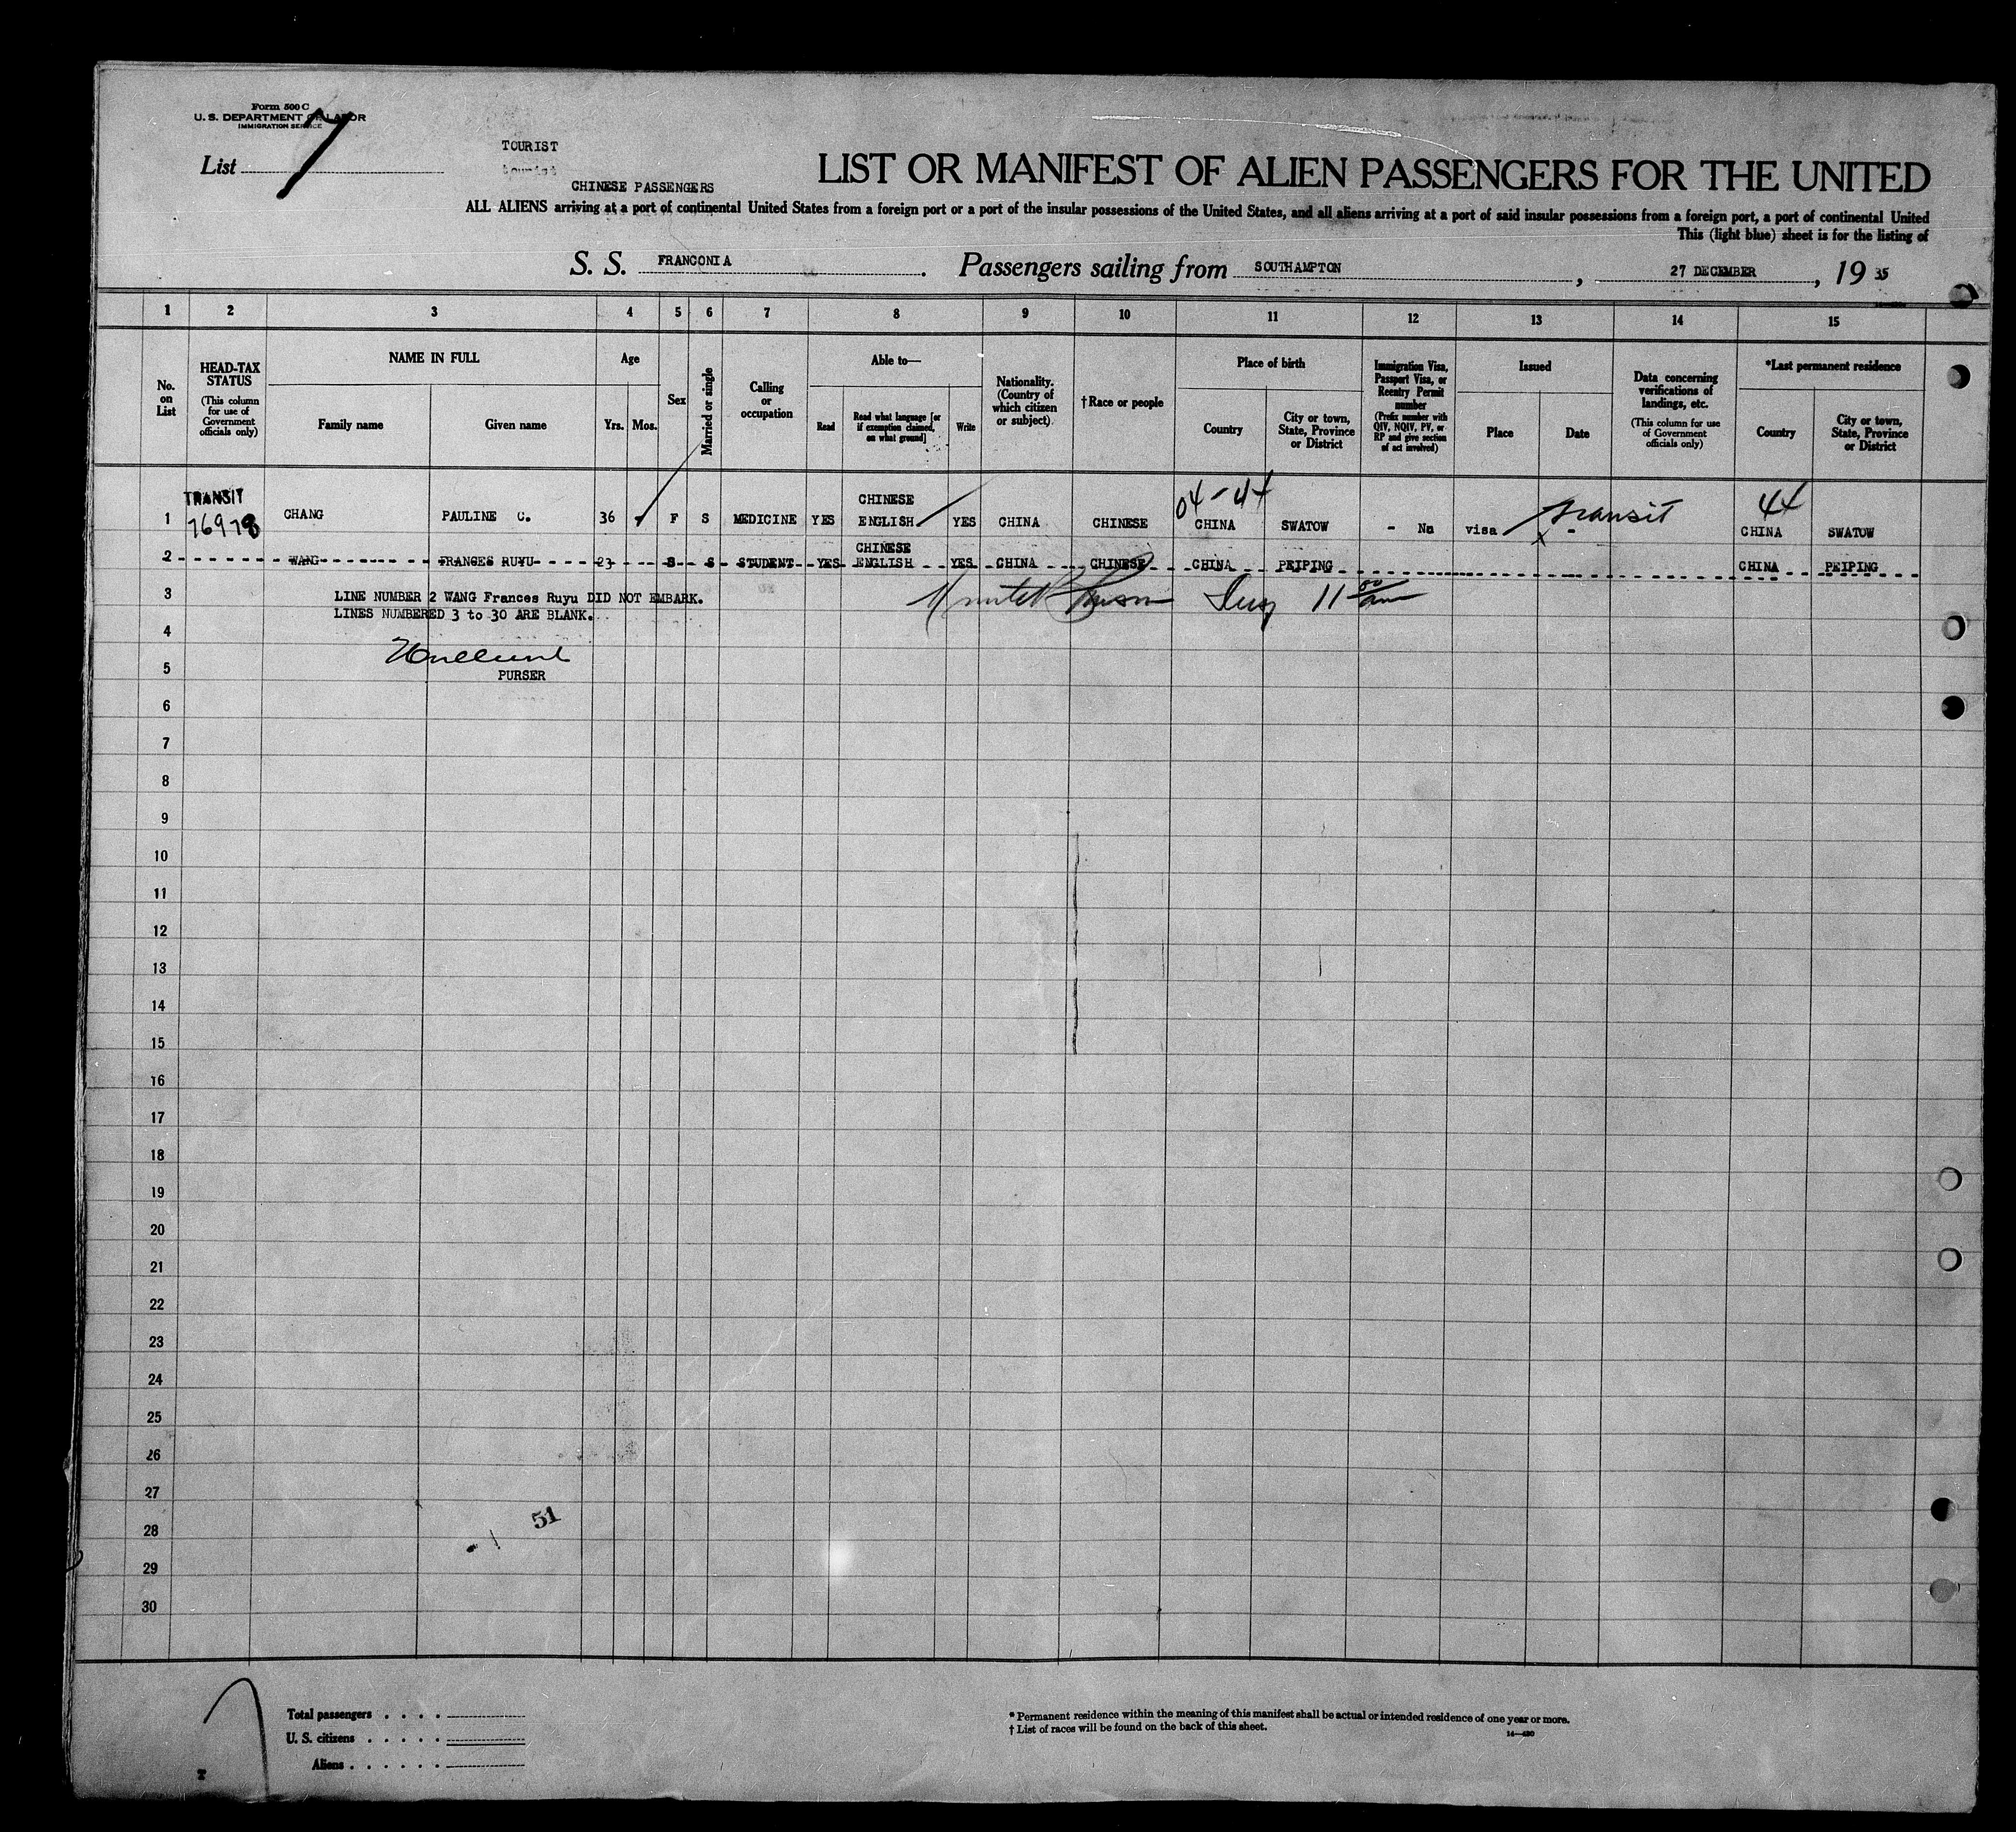 Form 500 C
U. S. DEPARTMENT OF LABOR
IMMIGRATION SERVICE
List 7
TOURIST
tourist
CHINESE PASSENGERS
LIST OR MANIFEST OF ALIEN PASSENGERS FOR THE UNITED
ALL ALIENS arriving at a port of continental United States from a foreign port or a port of the insular possessions of the United States, and all aliens arriving at a port of said insular possessions from a foreign port, a port of continental United
This (light blue) sheet is for the listing of
S. S. FRANCONIA. Passengers sailing from SOUTHAMPTON, 27 DECEMBER, 19 35
1 2 3 4 5 6 7 8 9 10 11 12 13 14 15
No. on List
HEAD-TAX STATUS
(This column for use of Government officials only)
NAME IN FULL
Family name Given name
Age
Yrs. Mos.
Sex
Married or single
Calling or occupation
Able to—
Read
Read what language [or if exemption claimed, on what ground]
Write
Nationality. (Country of which citizen or subject)
†Race or people
Place of birth
Country
City or town, State, Province or District
Immigration Visa, Passport Visa, or Reentry Permit number
(Prefix number with QIV, NQIV, PV, or RP and give section of act involved)
Issued
Place Date
Data concerning verifications of landings, etc.
(This column for use of Government officials only)
*Last permanent residence
Country
City or town, State, Province or District
TRANSIT
76978
04-44
44
1 CHANG PAULINE C. 36 F S MEDICINE YES CHINESE ENGLISH YES CHINA CHINESE CHINA SWATOW - No visa - transit CHINA SWATOW
2 WANG FRANCES RUYU 23 S S STUDENT YES CHINESE ENGLISH YES CHINA CHINESE CHINA PEIPING CHINA PEIPING
3 LINE NUMBER 2 WANG Frances Ruyu DID NOT EMBARK.
LINES NUMBERED 3 to 30 ARE BLANK.
Insp 11 00 am
4
5
PURSER
6
7
8
9
10
11
12
13
14
15
16
17
18
19
20
21
22
23
24
25
26
27
28
29
30
51
Total passengers . . . .
U. S. citizens . . . . .
Aliens . . . . . .
* Permanent residence within the meaning of this manifest shall be actual or intended residence of one year or more.
† List of races will be found on the back of this sheet.
14—420
7
T